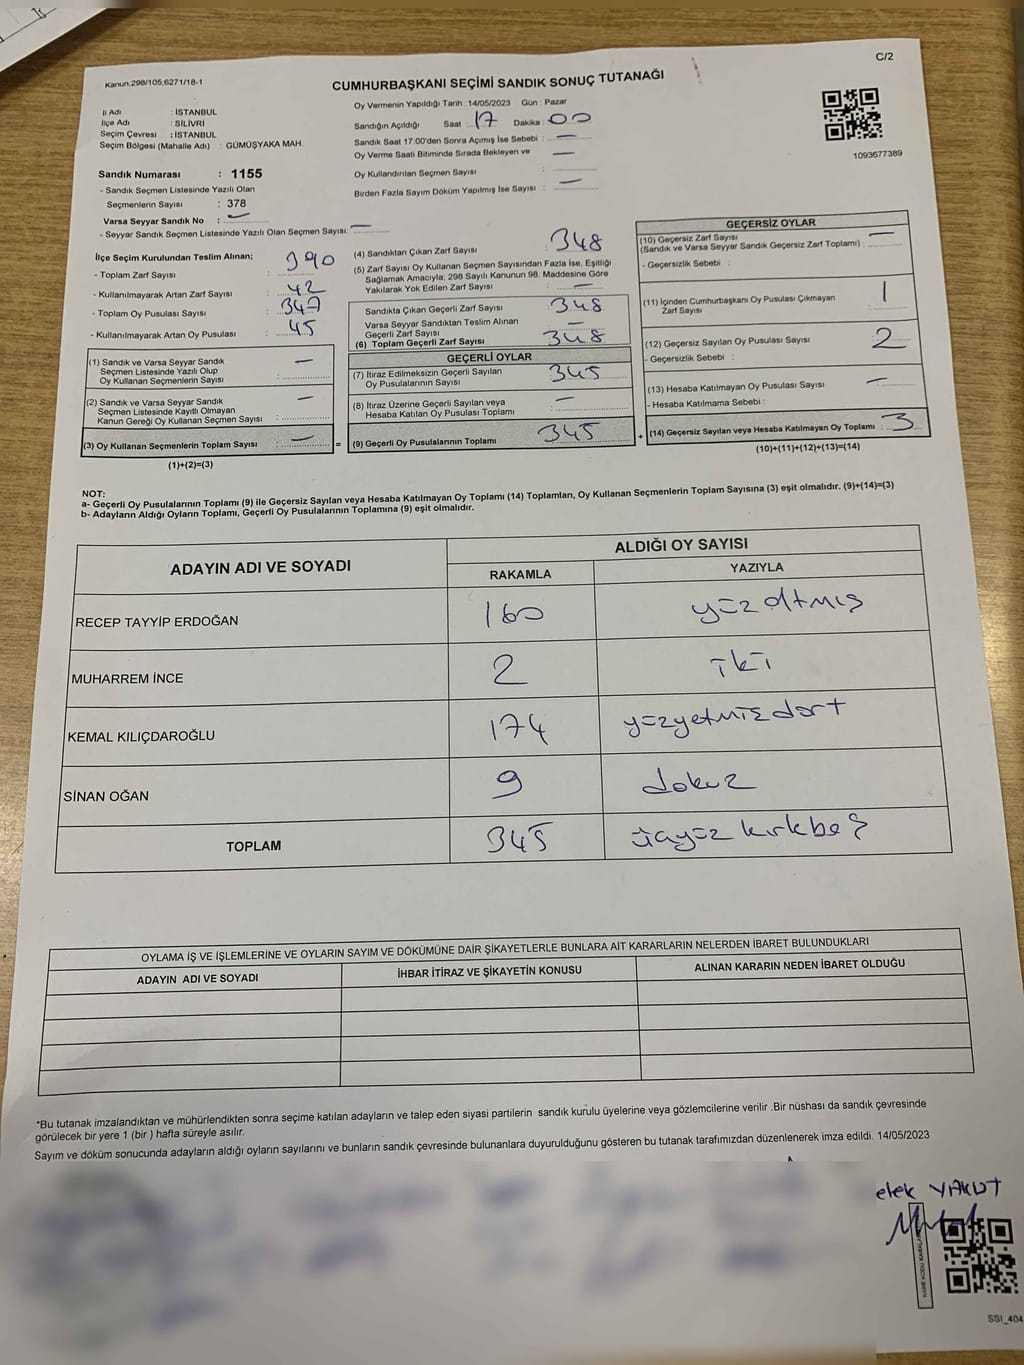 Kanun:298/105;6271/18-1
C/2
CUMHURBAŞKANI SEÇİMİ SANDIK SONUÇ TUTANAĞI
İl Adı : İSTANBUL
İlçe Adı : SİLİVRİ
Seçim Çevresi : İSTANBUL
Seçim Bölgesi (Mahalle Adı) : GÜMÜŞYAKA MAH.
Oy Vermenin Yapıldığı Tarih : 14/05/2023 Gün : Pazar
Sandığın Açıldığı Saat : 17 Dakika : 00
Sandık Saat 17.00'den Sonra Açımış İse Sebebi : —
Oy Verme Saati Bitiminde Sırada Bekleyen ve —
Oy Kullandırılan Seçmen Sayısı :
Birden Fazla Sayım Döküm Yapılmış İse Sayısı : —
1093677389
Sandık Numarası : 1155
- Sandık Seçmen Listesinde Yazılı Olan
Seçmenlerin Sayısı : 378
Varsa Seyyar Sandık No : —
- Seyyar Sandık Seçmen Listesinde Yazılı Olan Seçmen Sayısı: —
İlçe Seçim Kurulundan Teslim Alınan;
- Toplam Zarf Sayısı : 390
- Kullanılmayarak Artan Zarf Sayısı : 42
- Toplam Oy Pusulası Sayısı : 347
- Kullanılmayarak Artan Oy Pusulası : 45
(1) Sandık ve Varsa Seyyar Sandık —
Seçmen Listesinde Yazılı Olup
Oy Kullanan Seçmenlerin Sayısı :
(2) Sandık ve Varsa Seyyar Sandık —
Seçmen Listesinde Kayıtlı Olmayan
Kanun Gereği Oy Kullanan Seçmen Sayısı :
(3) Oy Kullanan Seçmenlerin Toplam Sayısı : — =
(1)+(2)=(3)
(4) Sandıktan Çıkan Zarf Sayısı : 348
(5) Zarf Sayısı Oy Kullanan Seçmen Sayısından Fazla İse, Eşitliği
Sağlamak Amacıyla; 298 Sayılı Kanunun 98. Maddesine Göre
Yakılarak Yok Edilen Zarf Sayısı : —
Sandıkta Çıkan Geçerli Zarf Sayısı : 348
Varsa Seyyar Sandıktan Teslim Alınan
Geçerli Zarf Sayısı : —
(6) Toplam Geçerli Zarf Sayısı : 348
GEÇERLİ OYLAR
(7) İtiraz Edilmeksizin Geçerli Sayılan
Oy Pusulalarının Sayısı : 345
(8) İtiraz Üzerine Geçerli Sayılan veya
Hesaba Katılan Oy Pusulası Toplamı : —
(9) Geçerli Oy Pusulalarının Toplamı : 345 +
GEÇERSİZ OYLAR
(10) Geçersiz Zarf Sayısı —
(Sandık ve Varsa Seyyar Sandık Geçersiz Zarf Toplamı) :
- Geçersizlik Sebebi :
(11) İçinden Cumhurbaşkanı Oy Pusulası Çıkmayan
Zarf Sayısı : 1
(12) Geçersiz Sayılan Oy Pusulası Sayısı : 2
- Geçersizlik Sebebi :
(13) Hesaba Katılmayan Oy Pusulası Sayısı : —
- Hesaba Katılmama Sebebi :
(14) Geçersiz Sayılan veya Hesaba Katılmayan Oy Toplamı : 3
(10)+(11)+(12)+(13)=(14)
NOT:
a- Geçerli Oy Pusulalarının Toplamı (9) ile Geçersiz Sayılan veya Hesaba Katılmayan Oy Toplamı (14) Toplamları, Oy Kullanan Seçmenlerin Toplam Sayısına (3) eşit olmalıdır. (9)+(14)=(3)
b- Adayların Aldığı Oyların Toplamı, Geçerli Oy Pusulalarının Toplamına (9) eşit olmalıdır.
ADAYIN ADI VE SOYADI
ALDIĞI OY SAYISI
RAKAMLA YAZIYLA
RECEP TAYYİP ERDOĞAN 160 yüzaltmış
MUHARREM İNCE 2 iki
KEMAL KILIÇDAROĞLU 174 yüzyetmişdört
SİNAN OĞAN 9 dokuz
TOPLAM 345 üçyüz kırkbeş
OYLAMA İŞ VE İŞLEMLERİNE VE OYLARIN SAYIM VE DÖKÜMÜNE DAİR ŞİKAYETLERLE BUNLARA AİT KARARLARIN NELERDEN İBARET BULUNDUKLARI
ADAYIN ADI VE SOYADI İHBAR İTİRAZ VE ŞİKAYETİN KONUSU ALINAN KARARIN NEDEN İBARET OLDUĞU
*Bu tutanak imzalandıktan ve mühürlendikten sonra seçime katılan adayların ve talep eden siyasi partilerin sandık kurulu üyelerine veya gözlemcilerine verilir .Bir nüshası da sandık çevresinde
görülecek bir yere 1 (bir ) hafta süreyle asılır.
Sayım ve döküm sonucunda adayların aldığı oyların sayılarını ve bunların sandık çevresinde bulunanlara duyurulduğunu gösteren bu tutanak tarafımızdan düzenlenerek imza edildi. 14/05/2023
elek YAKUT
SSI_404